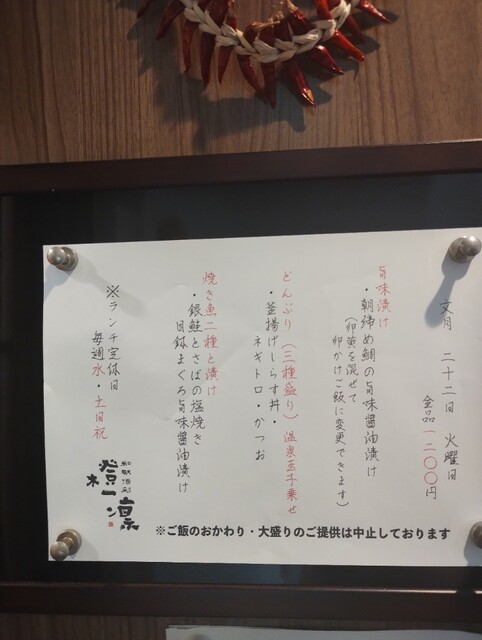 文月 二十二日 火曜日
全品一二〇〇円
旨味漬け
・朝締め鯛の旨味醤油漬け
(卵黄を混ぜて
卵かけご飯に変更できます)
どんぶり(三種盛り)温泉玉子乗せ
・釜揚げしらす丼・
ネギトロ・かつお
焼き魚二種と漬け
・銀鮭とさばの塩焼き
目鉢まぐろ旨味醤油漬け
※ランチ定休日
毎週水・土日祝
※ご飯のおかわり・大盛りのご提供は中止しております